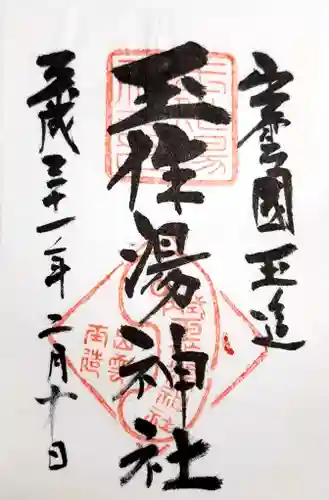 出雲國玉造
玉作湯神社
平成三十一年二月十日
出雲
玉造